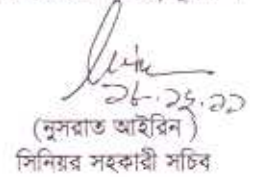 ২৮.১২.১১
(নুসরাত আইরিন )
সিনিয়র সহকারী সচিব